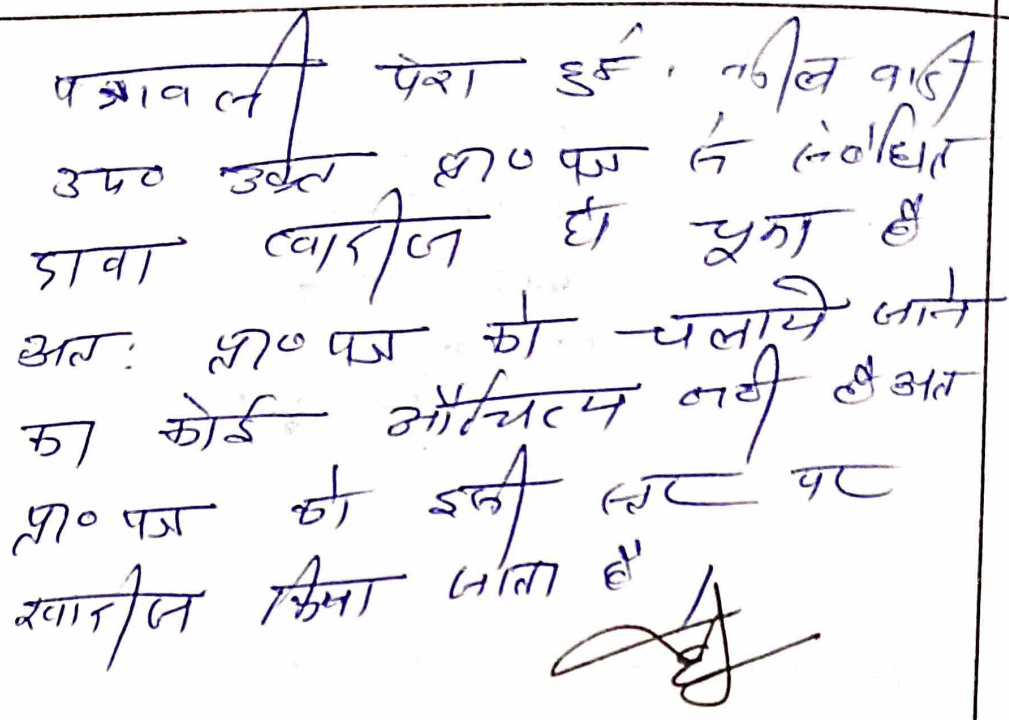 पत्रावली पेश हुई। वकील वादी
उप० उक्त प्रा० पत्र से संबंधित
दावा खारीज हो चूका है
अतः प्रा० पत्र को चलाये जाने
का कोई औचित्य नही है अत
प्रा० पत्र को इसी स्तर पर
खारीज किया जाता है